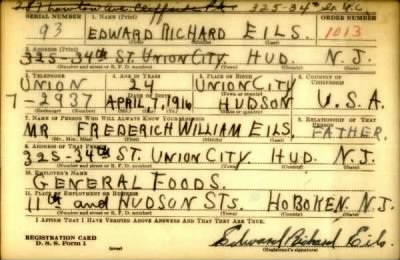 325-34th St. U.C.
SERIAL NUMBER 1. NAME (Print) ORDER NUMBER
93 EDWARD RICHARD EILS. 1013
2. ADDRESS (Print)
325-34th ST. UNION CITY HUD. N.J.
(Number and street or R. F. D. number) (Town) (County) (State)
3. TELEPHONE 4. AGE IN YEARS 5. PLACE OF BIRTH 6. COUNTRY OF CITIZENSHIP
UNION 24 UNION CITY
DATE OF BIRTH (Town or county)
7-2937 APRIL 7, 1916 HUDSON U.S.A.
7. NAME OF PERSON WHO WILL ALWAYS KNOW YOUR ADDRESS 8. RELATIONSHIP OF THAT PERSON
MR. FREDERICH WILLIAM EILS, FATHER.
(Mr., Mrs., Miss) (First) (Middle) (Last)
9. ADDRESS OF THAT PERSON
325-34th ST. UNION CITY, HUD. N.J.
(Number and street or R. F. D. number) (Town) (County) (State)
10. EMPLOYER'S NAME
GENERAL FOODS.
11. PLACE OF EMPLOYMENT OR BUSINESS
11th and HUDSON STS. HOBOKEN, N.J.
(Number and street or R. F. D. number) (Town) (County) (State)
I AFFIRM THAT I HAVE VERIFIED ABOVE ANSWERS AND THAT THEY ARE TRUE.
REGISTRATION CARD
D. S. S. Form 1 Edward Richard Eils.
(over) (Registrant's signature)